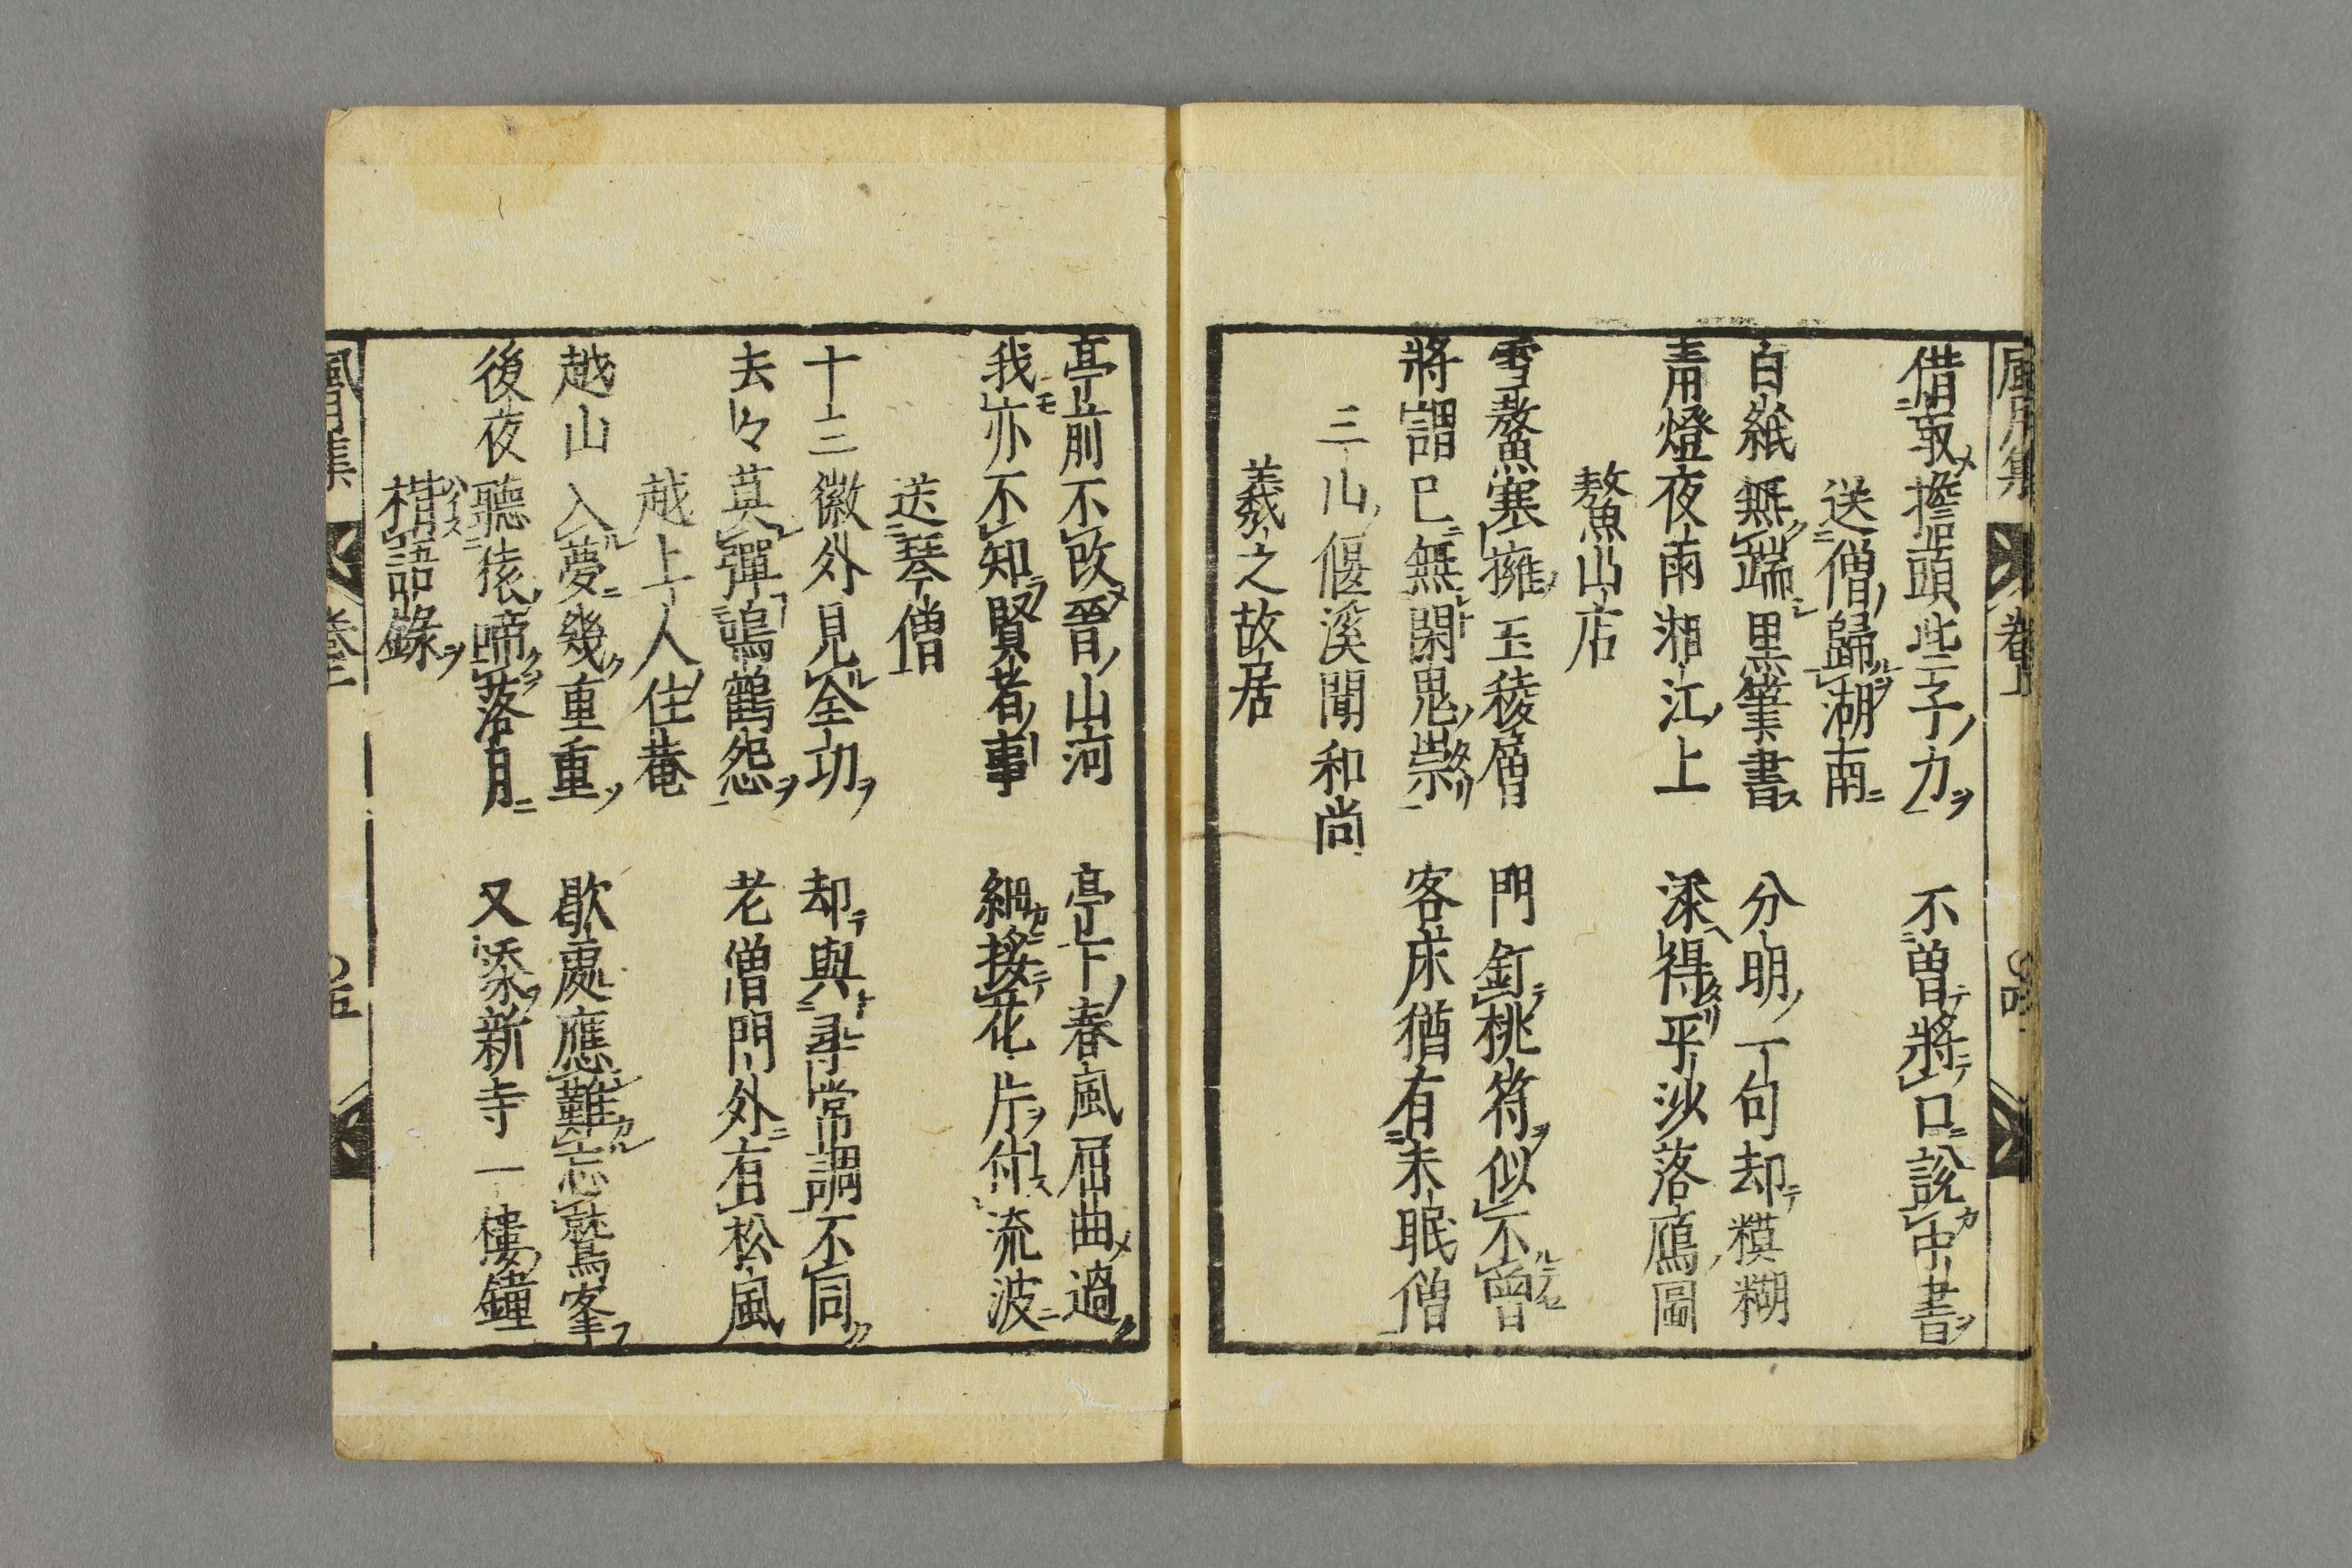 借取擔頭些子力　不曾將口說中書
送僧歸湖南
白紙無端黒筆書　分明一句却糢糊
青燈夜雨湘江上　添得平沙落鴈圖
鰲山店
雪鰲寒擁玉稜層　門釘桃符似不曾
將謂已無閑鬼祟　客床猶有未眠僧
三山偃溪聞和尚
羲之故居
亭前不改晉山河　亭下春風屈曲過
我亦不知賢者事　細挼花片付流波
送琴僧
十三徽外見全功　却與尋常調不同
去々莫彈鳴鶴怨　老僧門外有松風
越上人住菴
越山入夢幾重重　歇處應難忘鷲峯
後夜聽猿啼落月　又添新寺一樓鐘
楷語錄